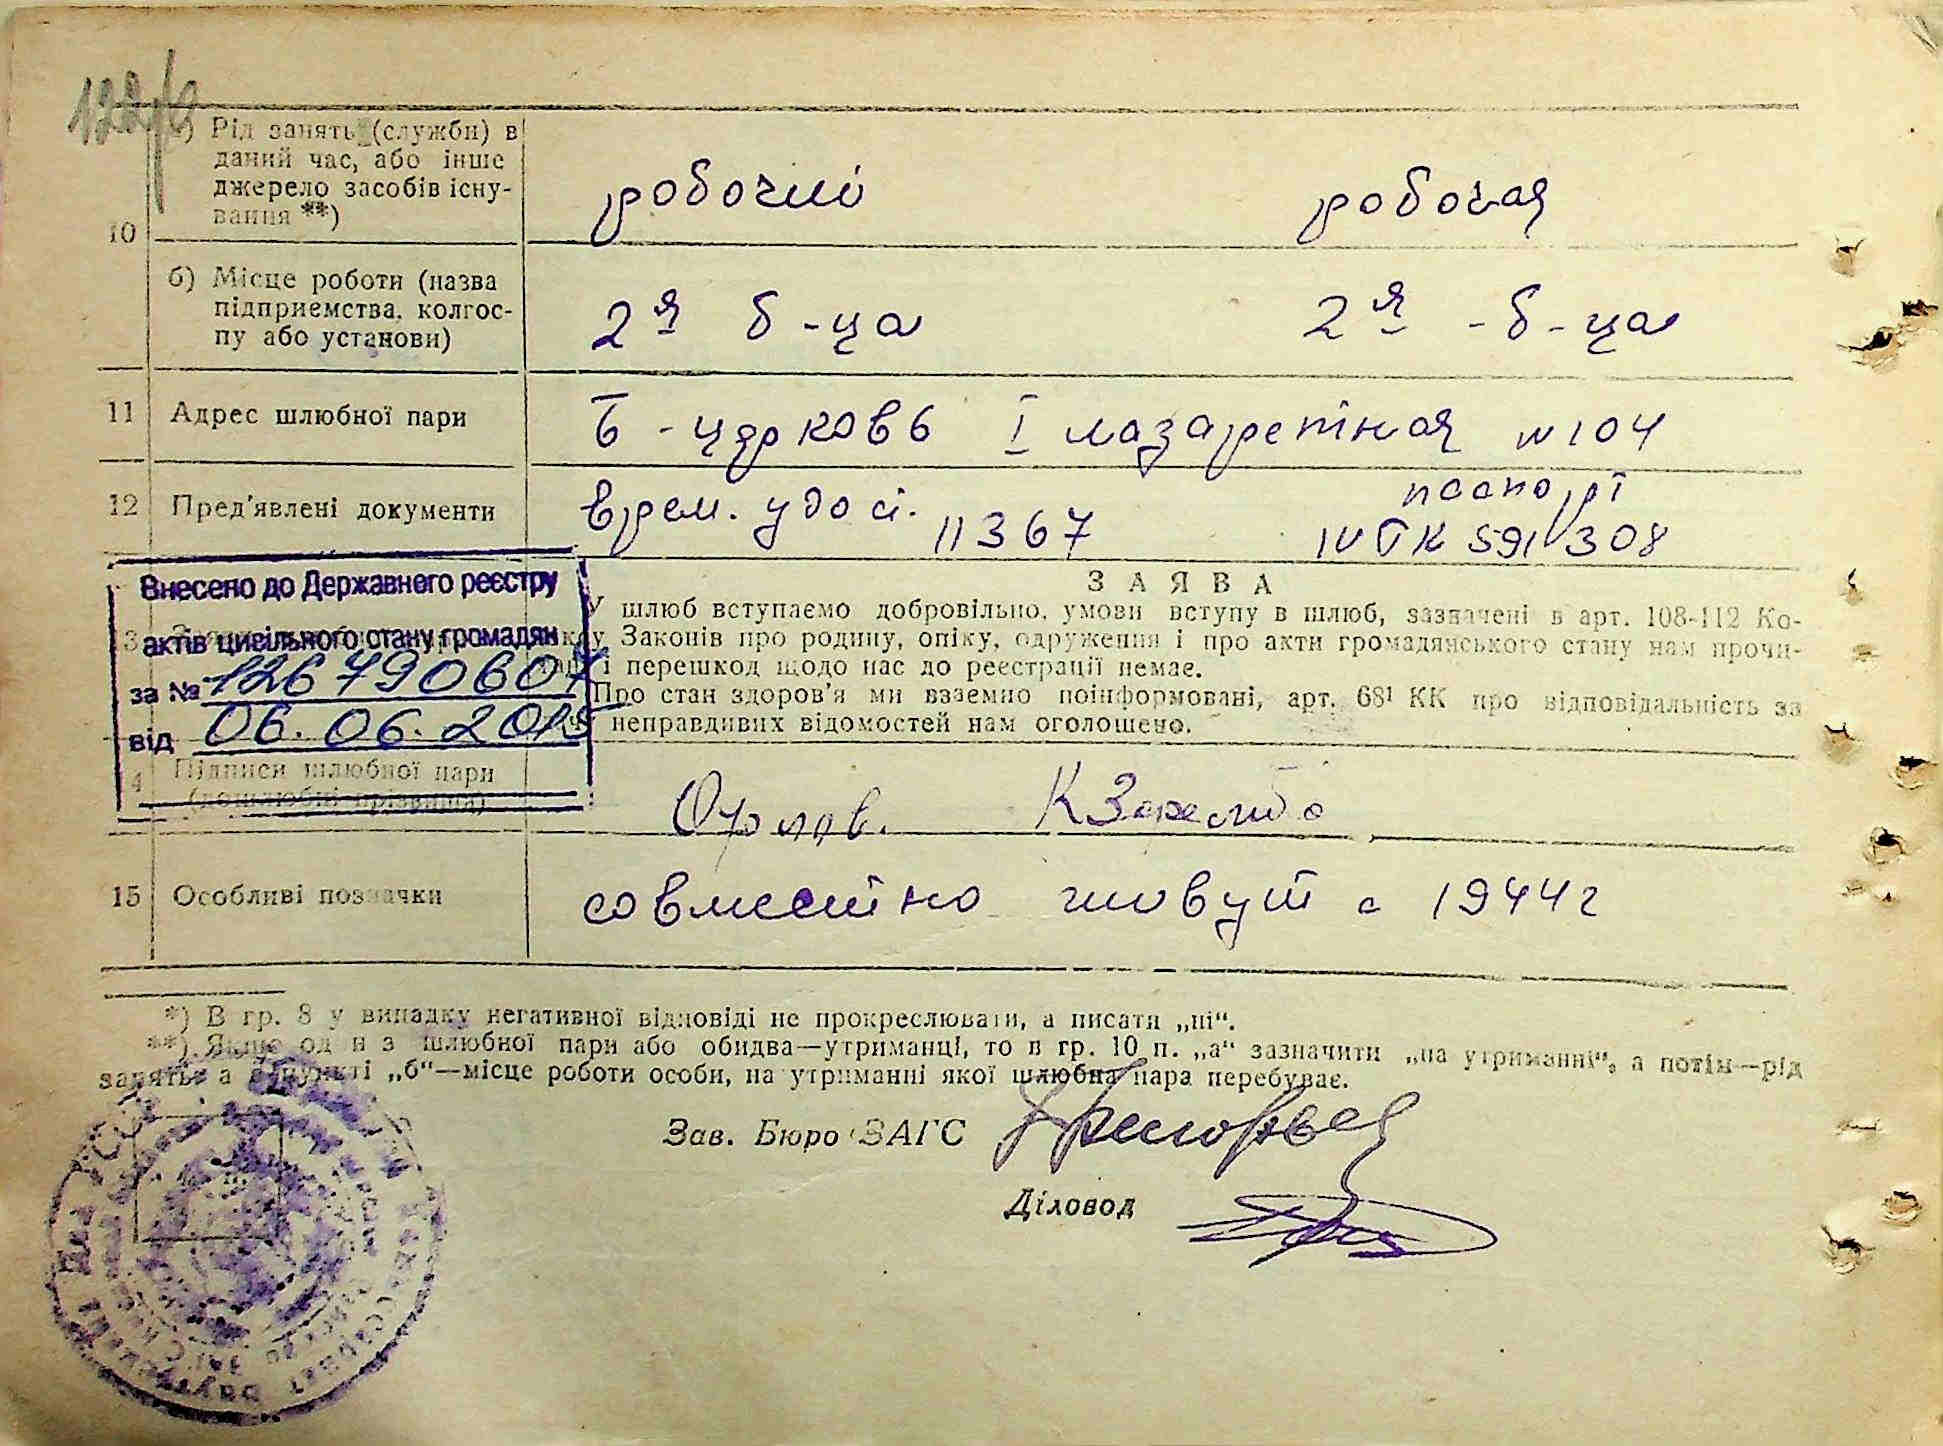 10
а) Рід занять (служби) в
даний час, або інше
джерело засобів існу-
вання **)
робочий робочая
б) Місце роботи (назва
підприємства, колгос-
пу або установи)
2я б-ца 2я -б-ца
11 Адрес шлюбної пари
Б-церковь I лазаретная №104
12 Пред'явлені документи
врем. удос. 11367
паспорт
IV ТК 591308
Внесено до Державного реєстру
актів цивільного стану громадян
за № 126790607
від 06.06.2015
ЗАЯВА
У шлюб вступаємо добровільно, умови вступу в шлюб, зазначені в арт. 108-112 Ко-
Законів про родину, опіку, одруження і про акти громадянського стану нам прочи-
і перешкод щодо нас до реєстрації немає.
Про стан здоров'я ми взаємно поінформовані, арт. 68¹ КК про відповідальність за
неправдивих відомостей нам оголошено.
14 Підписи шлюбної пари
(дошлюбні прізвища)
Орлов.
15 Особливі позначки
совместно живут с 1944г
*) В гр. 8 у випадку негативної відповіді не прокреслювати, а писати „ні“.
**) Якщо один з шлюбної пари або обидва—утриманці, то в гр. 10 п. „а“ зазначити „на утриманні“, а потім—рід
занять, а в пункті „б“—місце роботи особи, на утриманні якої шлюбна пара перебуває.
Зав. Бюро ЗАГС
Діловод